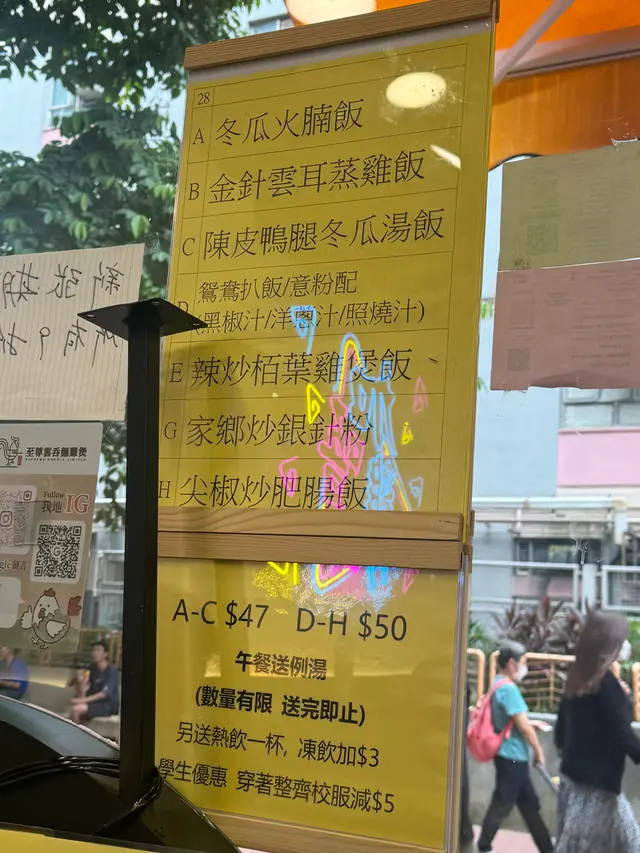 28
A 冬瓜火腩飯
B 金針雲耳蒸雞飯
C 陳皮鴨腿冬瓜湯飯
D 鴛鴦扒飯/意粉配
(黑椒汁/洋蔥汁/照燒汁)
E 辣炒栢葉雞煲飯
G 家鄉炒銀針粉
H 尖椒炒肥腸飯
A-C $47 D-H $50
午餐送例湯
(數量有限 送完即止)
另送熱飲一杯, 凍飲加$3
學生優惠 穿著整齊校服減$5
至尊雲吞麵雞煲
Follow
我地 IG